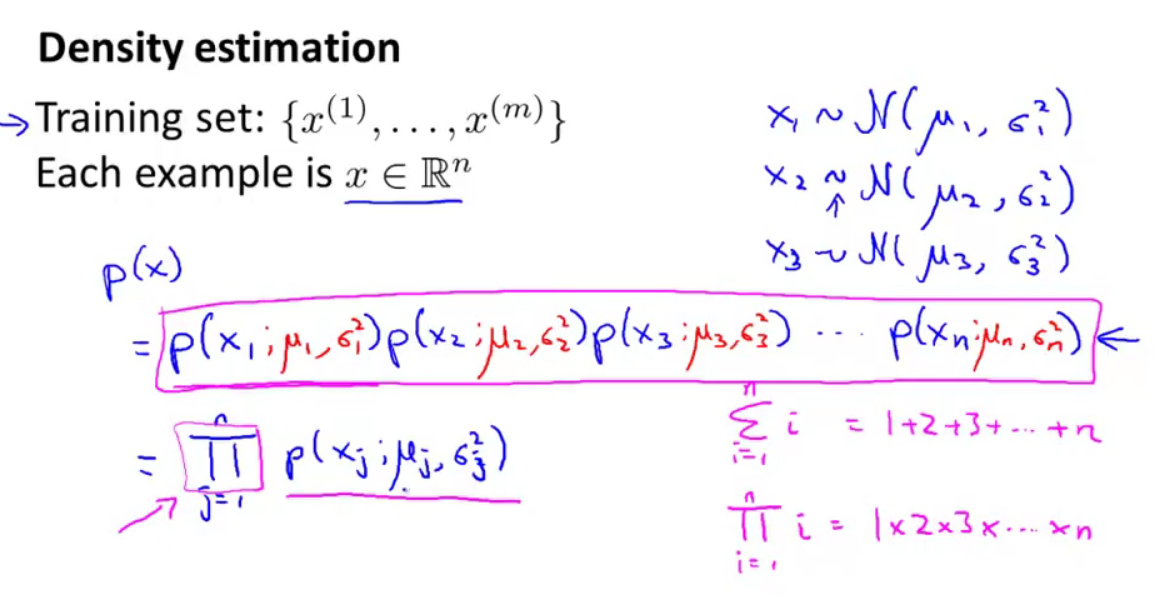 Density estimation
→ Training set: {x^(1), . . . , x^(m)}
Each example is x ∈ ℝ^n
x₁ ~ N(μ₁, σ₁²)
x₂ ~ N(μ₂, σ₂²)
↑
x₃ ~ N(μ₃, σ₃²)
p(x)
= p(x₁; μ₁, σ₁²) p(x₂; μ₂, σ₂²) p(x₃; μ₃, σ₃²) ... p(xₙ; μₙ, σₙ²) ←
= ∏_{j=1}^{n} p(xⱼ; μⱼ, σⱼ²)
∑_{i=1}^{n} i = 1+2+3+...+n
∏_{i=1}^{n} i = 1×2×3×...×n